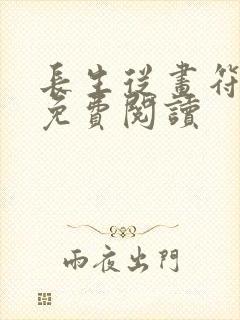 長生從畫符
免費閱讀
雨夜出門